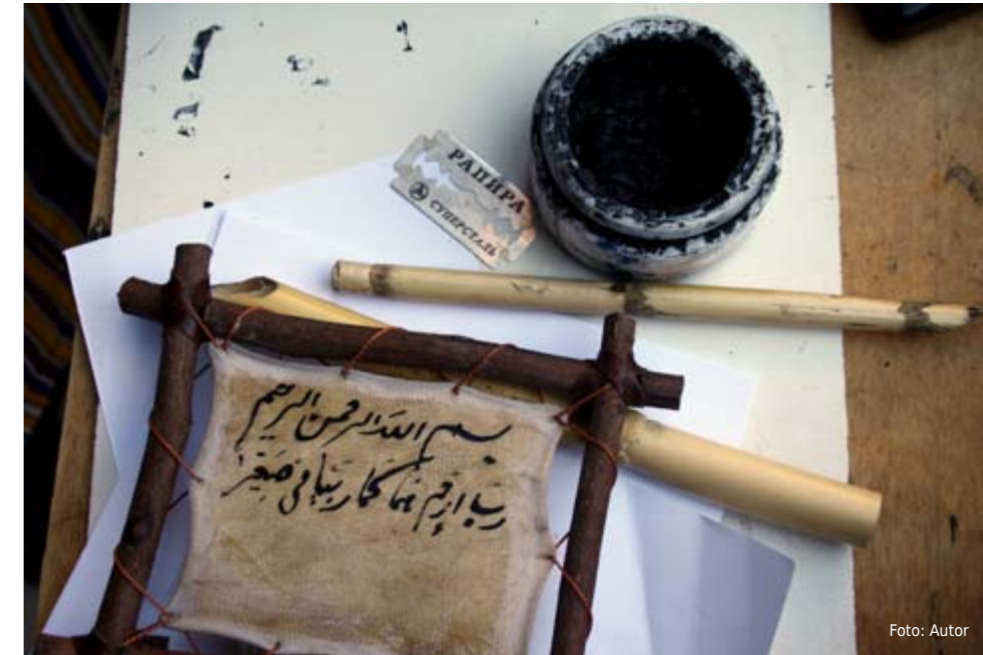 РАПИРА
СУПЕРСТАЛЬ
بسم الله الرحمن الرحيم
رب ارحمهما كما ربياني صغيرا
Foto: Autor